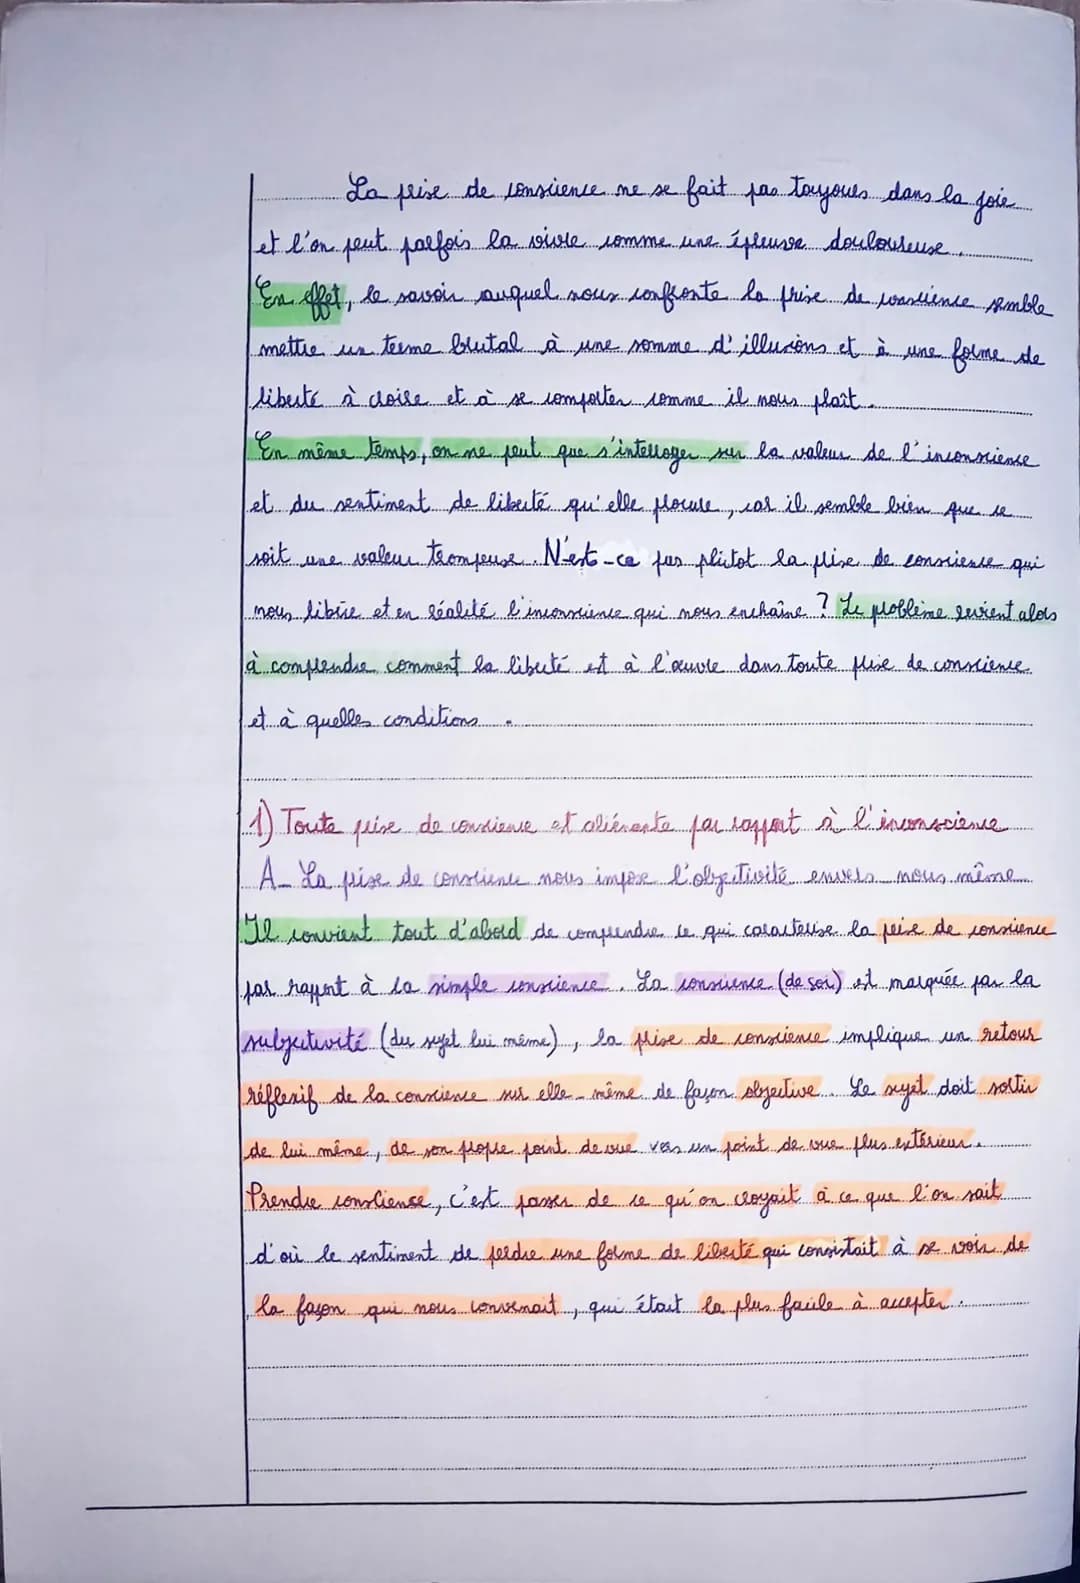 La prise de conscience ne se fait pas toujours dans la joie
et l'on peut parfois la vivre comme une épreuve douloureuse.
En effet, le savoir auquel nous confronte la prise de conscience semble
mettre un terme brutal à une somme d'illusions et à une forme de
liberté à croire et à se comporter comme il nous plaît.
En même temps, on ne peut que s'interroger sur la valeur de l'inconscience
et du sentiment de liberté qu'elle procure, car il semble bien que ce
soit une valeur trompeuse. N'est-ce pas plutot la prise de conscience qui
nous libère et en réalité l'inconscience qui nous enchaîne ? Le problème revient alors
à comprendre comment la liberté est à l'œuvre dans toute prise de conscience
et à quelles conditions.
1) Toute prise de conscience est aliénante par rapport à l'inconscience
A_ La prise de conscience nous impose l'objectivité envers nous même
Il convient tout d'abord de comprendre ce qui caractérise la prise de conscience
par rapport à la simple conscience. La conscience (de soi) est marquée par la
subjectivité (du sujet lui même), la prise de conscience implique un retour
réflexif de la conscience sur elle-même de façon objective. Le sujet doit sortir
de lui même, de son propre point de vue vers un point de vue plus extérieur.
Prendre conscience, c'est passer de ce qu'on croyait à ce que l'on sait
d'où le sentiment de perdre une forme de liberté qui consistait à se voir de
la façon qui nous convenait, qui était la plus facile à accepter.